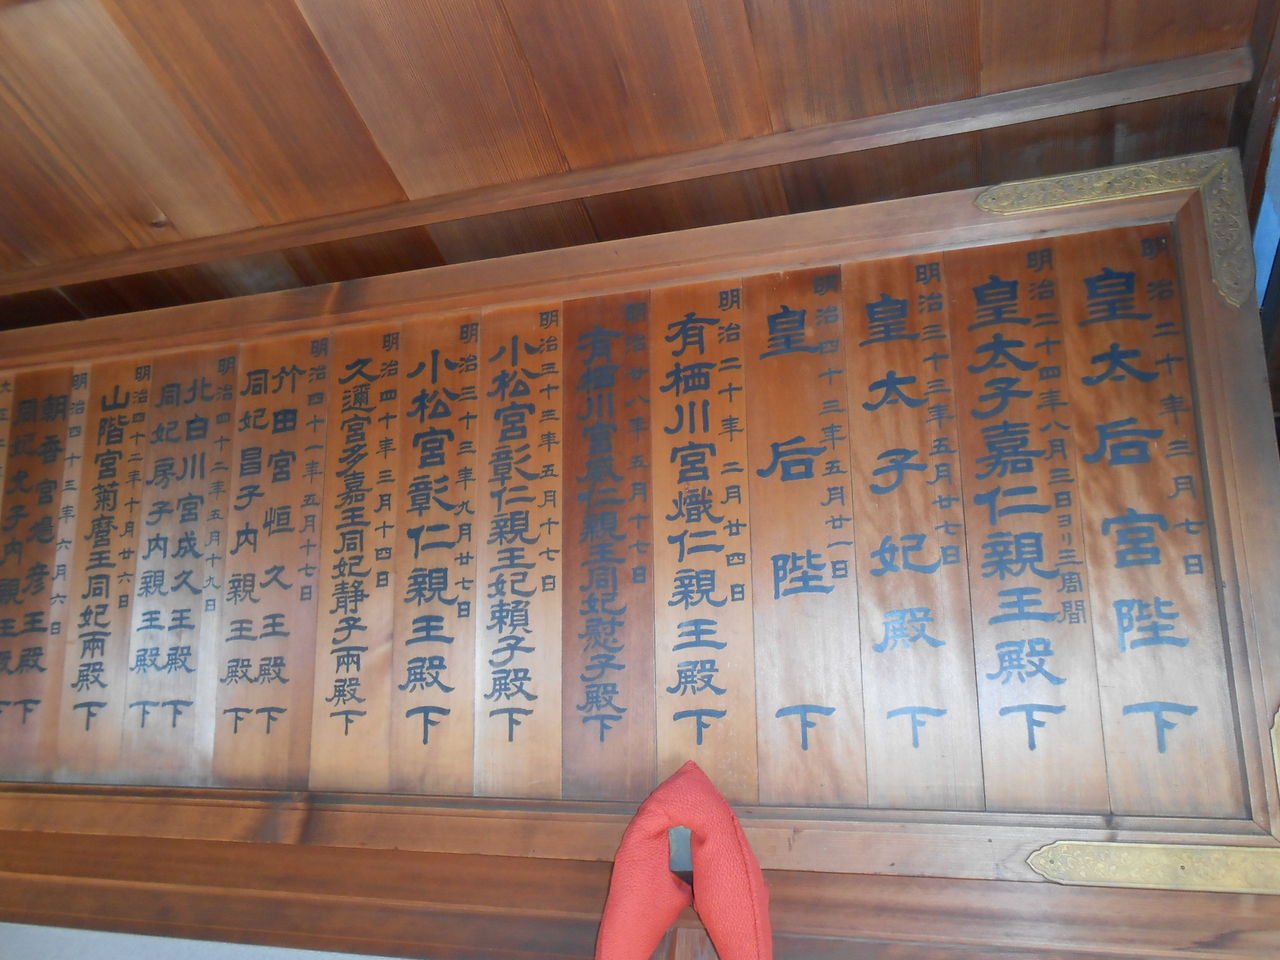 明治二十年三月七日
皇太后宮陛下
明治二十四年八月三日ヨリ三周間
皇太子嘉仁親王殿下
明治三十三年五月廿七日
皇太子妃殿下
明治四十三年五月廿一日
皇后陛下
明治二十年二月廿四日
有栖川宮熾仁親王殿下
明治廿八年五月十七日
有栖川宮威仁親王同妃慰子殿下
明治三十三年五月十七日
小松宮彰仁親王妃頼子殿下
明治三十年九月廿七日
小松宮彰仁親王殿下
明治四十年三月十四日
久邇宮多嘉王同妃静子両殿下
明治四十一年五月十七日
竹田宮恒久王殿下
同妃昌子内親王殿下
明治四十二年五月十九日
北白川宮成久王殿下
同妃房子内親王殿下
明治四十二年十月廿六日
山階宮菊麿王同妃両殿下
明治四十三年六月六日
朝香宮鳩彦王殿下
同妃允子内親王殿下
大正